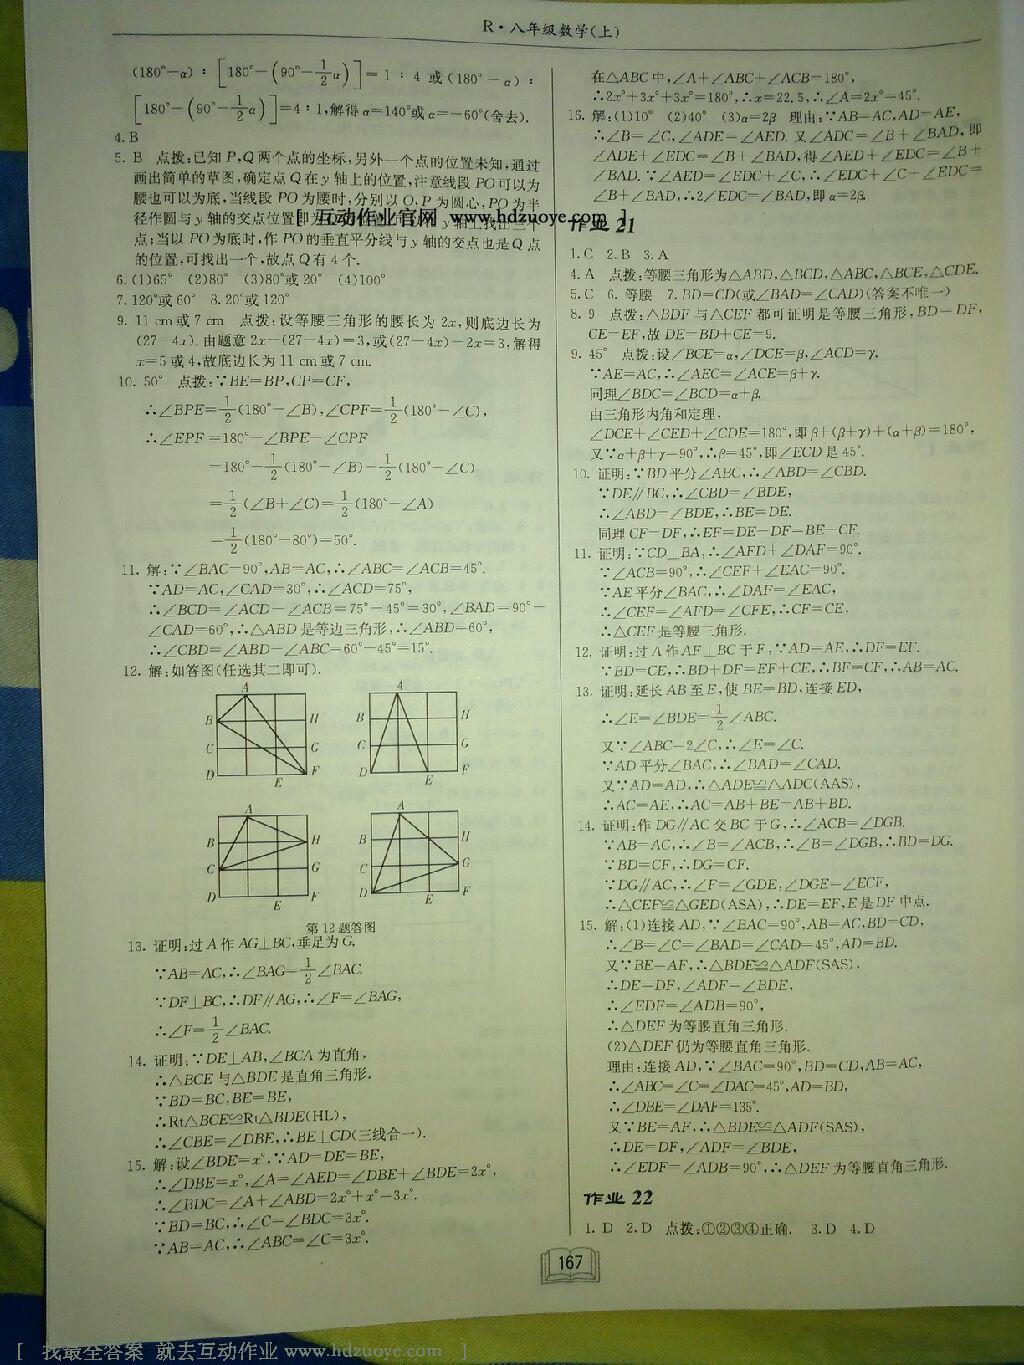 R·八年级数学(上)
(180°-α):[180°-(90°-1/2α)]=1:4或(180°-α):
[180°-(90°-1/2α)]=4:1,解得α=140°或α=-60°(舍去).
4. B
5. B 点拨:已知P,Q两个点的坐标,另外一个点的位置未知,通过
画出简单的草图,确定点Q在y轴上的位置,注意线段PO可以为
腰也可以为底,当线段PO为腰时,分别以O,P为圆心,PO为半
径作圆与y轴的交点位置即为
点;当以PO为底时,作PO的垂直平分线与y轴的交点也是Q点
的位置,可找出一个,故点Q有4个.
6. (1)65° (2)80° (3)80°或20° (4)100°
7. 120°或60° 8. 20°或120°
9. 11 cm或7 cm 点拨:设等腰三角形的腰长为2x,则底边长为
(27-4x).由题意2x-(27-4x)=3,或(27-4x)-2x=3,解得
x=5或4,故底边长为11 cm或7 cm.
10. 50° 点拨:∵BE=BP,CP=CF,
∴∠BPE=1/2(180°-∠B),∠CPF=1/2(180°-∠C),
∴∠EPF=180°-∠BPE-∠CPF
=180°-1/2(180°-∠B)-1/2(180°-∠C)
=1/2(∠B+∠C)=1/2(180°-∠A)
=1/2(180°-80°)=50°.
11. 解:∵∠BAC=90°,AB=AC,∴∠ABC=∠ACB=45°.
∵AD=AC,∠CAD=30°,∴∠ACD=75°,
∴∠BCD=∠ACD-∠ACB=75°-45°=30°,∠BAD=90°-
∠CAD=60°,∴△ABD是等边三角形,∴∠ABD=60°,
∴∠CBD=∠ABD-∠ABC=60°-45°=15°.
12. 解:如答图(任选其二即可).
A B C D E F G H
A B C D E F G H
A B C D E F G H
A B C D E F G H
第12题答图
13. 证明:过A作AG⊥BC,垂足为G.
∵AB=AC,∴∠BAG=1/2∠BAC.
∵DF⊥BC,∴DF∥AG,∴∠F=∠BAG,
∴∠F=1/2∠BAC.
14. 证明:∵DE⊥AB,∠BCA为直角,
∴△BCE与△BDE是直角三角形,
∵BD=BC,BE=BE,
∴Rt△BCE≌Rt△BDE(HL),
∴∠CBE=∠DBE,∴BE⊥CD(三线合一).
15. 解:设∠BDE=x°.∵AD=DE=BE,
∴∠DBE=x°,∠A=∠AED=∠DBE+∠BDE=2x°,
∴∠BDC=∠A+∠ABD=2x°+x°=3x°.
∵BD=BC,∴∠C=∠BDC=3x°.
∵AB=AC,∴∠ABC=∠C=3x°,
在△ABC中,∠A+∠ABC+∠ACB=180°,
∴2x°+3x°+3x°=180°,∴x=22.5,∴∠A=2x°=45°.
16. 解:(1)10° (2)40° (3)α=2β 理由:∵AB=AC,AD=AE,
∴∠B=∠C,∠ADE=∠AED.又∠ADC=∠B+∠BAD,即
∠ADE+∠EDC=∠B+∠BAD,得∠AED+∠EDC=∠B+
∠BAD.∵∠AED=∠EDC+∠C,∴∠EDC+∠C+∠EDC=
∠B+∠BAD,∴2∠EDC=∠BAD,即α=2β.
作业 21
1. C 2. B 3. A
4. A 点拨:等腰三角形为△ABD,△BCD,△ABC,△BCE,△CDE.
5. C 6. 等腰 7. BD=CD(或∠BAD=∠CAD)(答案不唯一)
8. 9 点拨:△BDF与△CEF都可证明是等腰三角形,BD=DF,
CE=EF,故DE=BD+CE=9.
9. 45° 点拨:设∠BCE=α,∠DCE=β,∠ACD=γ.
∵AE=AC,∴∠AEC=∠ACE=β+γ.
同理∠BDC=∠BCD=α+β.
由三角形内角和定理,
∠DCE+∠CED+∠CDE=180°,即β+(β+γ)+(α+β)=180°,
又∵α+β+γ=90°,∴β=45°,即∠ECD是45°.
10. 证明:∵BD平分∠ABC,∴∠ABD=∠CBD.
∵DE∥BC,∴∠CBD=∠BDE,
∴∠ABD=∠BDE,∴BE=DE.
同理CF=DF,∴EF=DE-DF=BE-CF.
11. 证明:∵CD⊥BA,∴∠AFD+∠DAF=90°.
∵∠ACB=90°,∴∠CEF+∠EAC=90°.
∵AE平分∠BAC,∴∠DAF=∠EAC,
∴∠CEF=∠AFD=∠CFE,∴CF=CE,
∴△CEF是等腰三角形.
12. 证明:过A作AF⊥BC于F,∵AD=AE,∴DF=EF.
∵BD=CE,∴BD+DF=EF+CE,∴BF=CF,∴AB=AC.
13. 证明:延长AB至E,使BE=BD,连接ED,
∴∠E=∠BDE=1/2∠ABC.
又∵∠ABC=2∠C,∴∠E=∠C.
∵AD平分∠BAC,∴∠BAD=∠CAD.
又∵AD=AD,∴△ADE≌△ADC(AAS),
∴AC=AE,∴AC=AB+BE=AB+BD.
14. 证明:作DG∥AC交BC于G,∴∠ACB=∠DGB.
∵AB=AC,∴∠B=∠ACB,∴∠B=∠DGB,∴BD=DG.
∵BD=CF,∴DG=CF.
∵DG∥AC,∴∠F=∠GDE,∠DGE=∠ECF,
∴△CEF≌△GED(ASA),∴DE=EF,E是DF中点.
15. 解:(1)连接AD,∵∠BAC=90°,AB=AC,BD=CD,
∴∠B=∠C=∠BAD=∠CAD=45°,AD=BD.
又∵BE=AF,∴△BDE≌△ADF(SAS),
∴DE=DF,∠ADF=∠BDE,
∴∠EDF=∠ADB=90°,
∴△DEF为等腰直角三角形.
(2)△DEF仍为等腰直角三角形.
理由:连接AD,∵∠BAC=90°,BD=CD,AB=AC,
∴∠ABC=∠C=∠DAC=45°,AD=BD,
∴∠DBE=∠DAF=135°.
又∵BE=AF,∴△BDE≌△ADF(SAS),
∴DE=DF,∠ADF=∠BDE,
∴∠EDF=∠ADB=90°,∴△DEF为等腰直角三角形.
作业 22
1. D 2. D 点拨:①②③④正确. 3. D 4. D
167
[ 互动作业官网 www.hdzuoye.com ]
[ 找最全答案 就去互动作业 www.hdzuoye.com ]